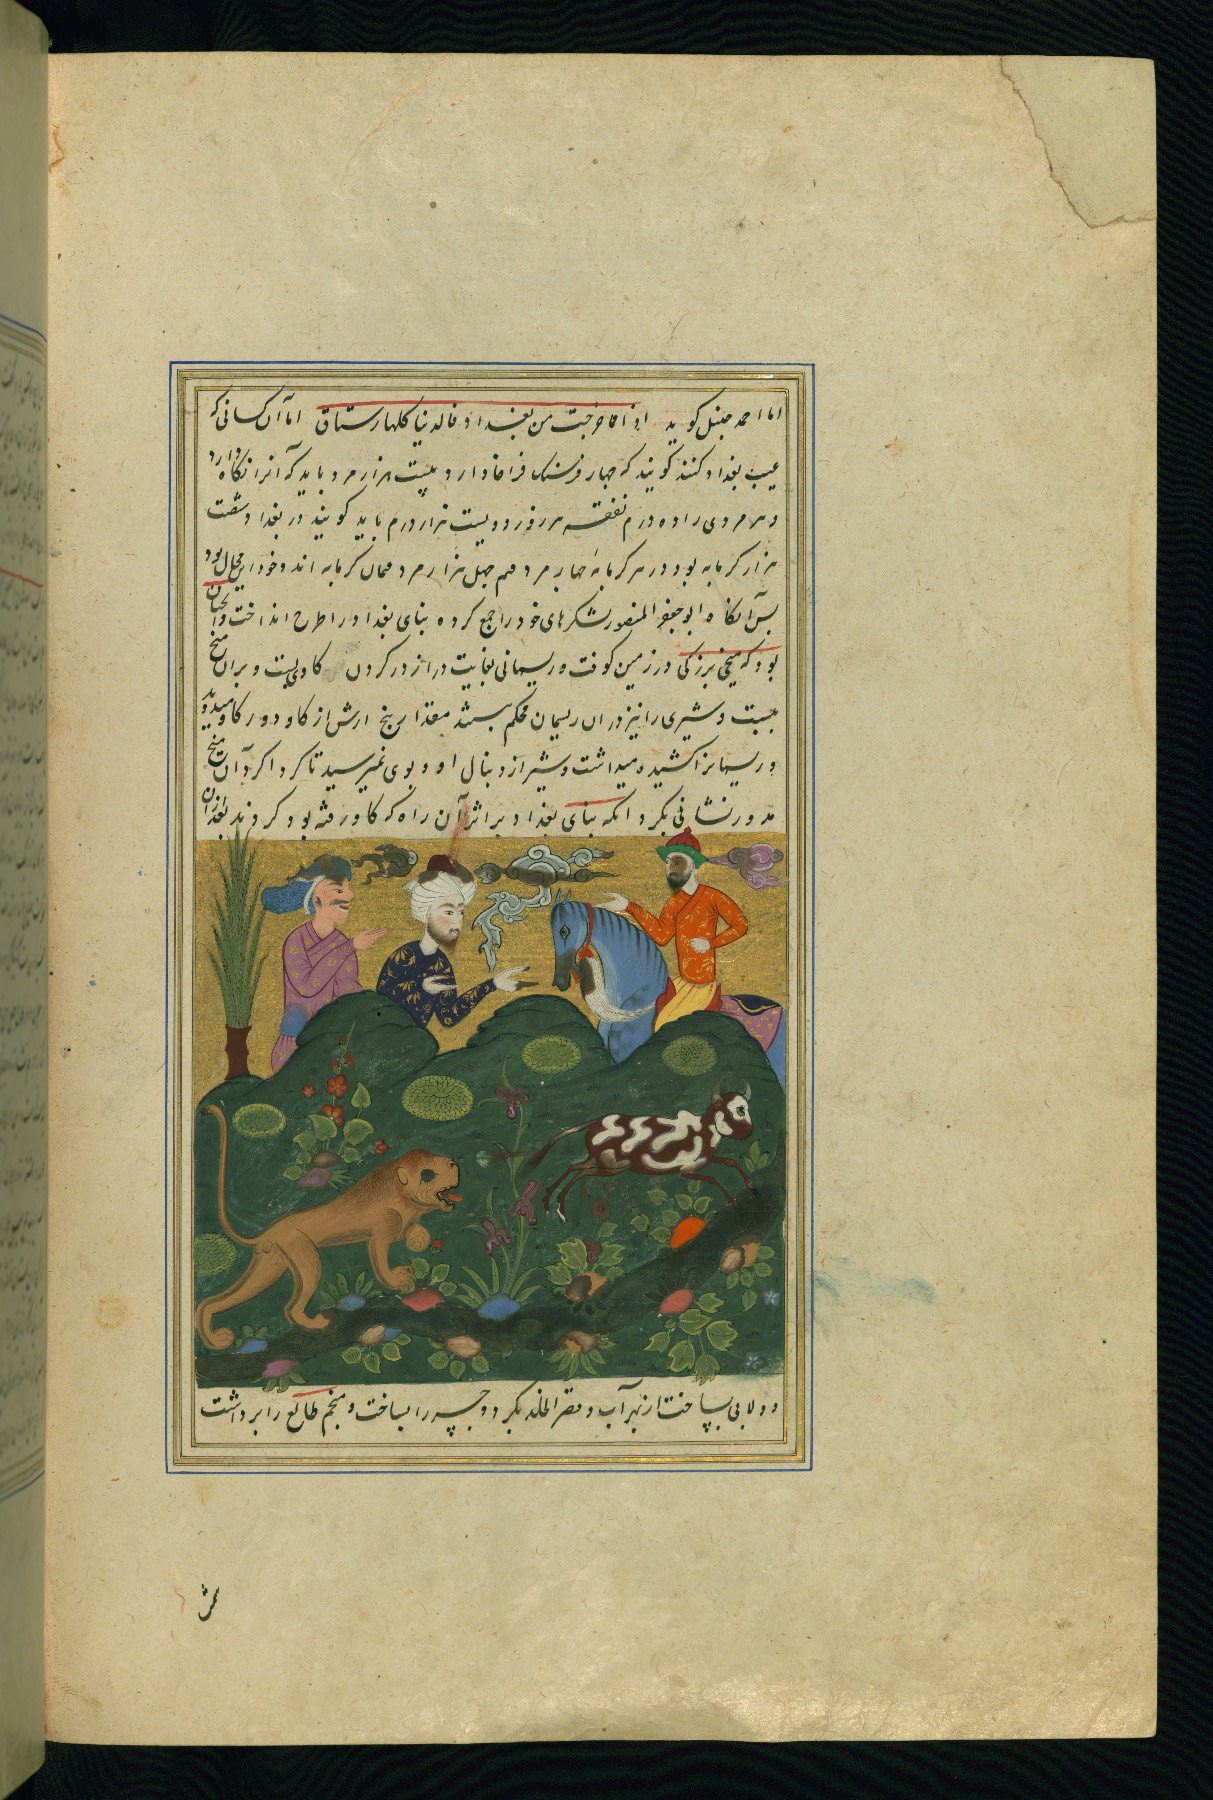 اما احمد حنبل کوید اذا ما خرجت من بغداد فالدنیا کلها رستاق اما آن کسانی که
عیب بغداد کنند کویند که چهار فرسنک فراخا دارد بیست هزار مرد باید که آنرا نکاه دارد
و هر مردی را ده درم نفقه هر روز دویست هزار درم باید کویند در بغداد شصت
هزار کرمابه بود در هر کرمابه چهار مرد هم چهل هزار مرد کرمابه اند و خود این محال بود
پس آنکاه ابو جعفر المنصور لشکرهای خود را جمع کرده بنای بغداد را طرح انداخت و
بود که میخی بزرک در زمین کوفت و ریسمانی بغایت دراز در کردن کاوی بست و بران میخ
ببست و شیری را نیز دران ریسمان محکم ببستند مقدار پنج ارش از کاو دور کاو میدوید
و ریسمانرا کشیده میداشت و شیر از دنبال او و بوی نمیرسید تا کرداکرد آن میخ
مدور نشانی بکرد آنکه بنای بغداد بر اثر آن راه که کاو رفته بود کردند بعد ازان
و دولابی بساخت از نهر آب و قصر الخلد بکرد و جسر را بساخت و منجم طالع را برداشت